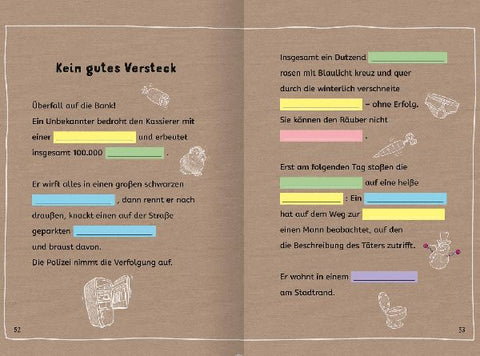 Kein gutes Versteck
Überfall auf die Bank!
Ein Unbekannter bedroht den Kassierer mit
einer und erbeutet
insgesamt 100.000 .
Er wirft alles in einen großen schwarzen
, dann rennt er nach
draußen, knackt einen auf der Straße
geparkten
und braust davon.
Die Polizei nimmt die Verfolgung auf.
52
Insgesamt ein Dutzend
rasen mit Blaulicht kreuz und quer
durch die winterlich verschneite
– ohne Erfolg.
Sie können den Räuber nicht
.
Erst am folgenden Tag stoßen die
auf eine heiße
: Ein
hat auf dem Weg zur
einen Mann beobachtet, auf den
die Beschreibung des Täters zutrifft.
Er wohnt in einem
am Stadtrand.
53